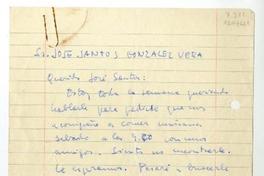 Sr. JOSE SANTOS GONZALEZ VERA
Querido José Santos:
Estoy toda la semana queriendo
hablarle para pedirle que nos
acompañe a comer mañana
sábado a las 9.00 con unos
amigos. Siento no encontrarlo.
Le esperamos. Pasaré a buscarle